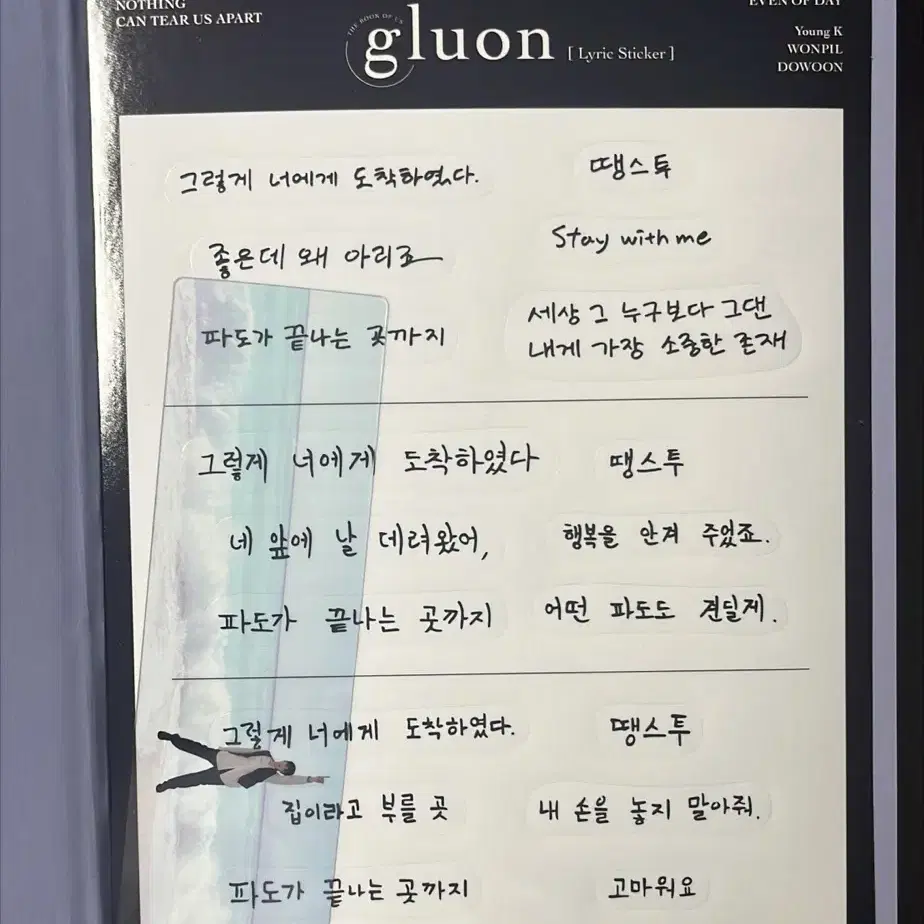 NOTHING
CAN TEAR US APART
THE BOOK OF US
gluon
[ Lyric Sticker ]
EVEN OF DAY
Young K
WONPIL
DOWOON
그렇게 너에게 도착하였다.
땡스투
좋은데 왜 아리죠
Stay with me
파도가 끝나는 곳까지
세상 그 누구보다 그댄
내게 가장 소중한 존재
그렇게 너에게 도착하였다
땡스투
네 앞에 날 데려왔어,
행복을 안겨 주었죠.
파도가 끝나는 곳까지
어떤 파도도 견딜게.
그렇게 너에게 도착하였다.
땡스투
집이라고 부를 곳
내 손을 놓지 말아줘.
파도가 끝나는 곳까지
고마워요